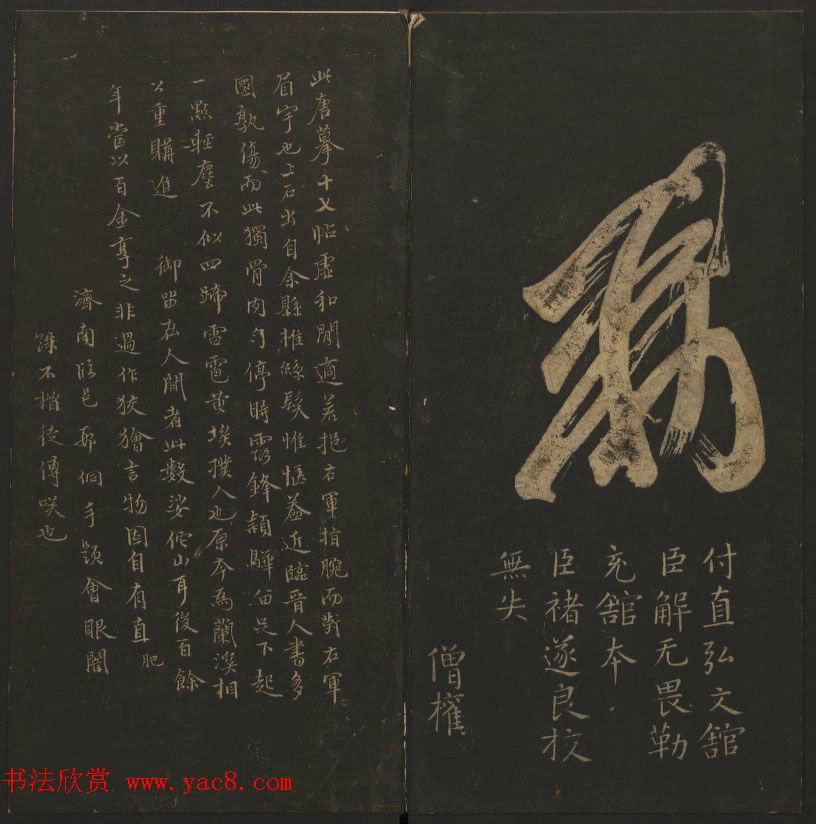 勅
付直弘文舘
臣解无畏勒
充舘本
臣褚遂良校
無失
僧權
此唐摹十七帖虛和閒適若挹右軍指腕而對右軍
眉宇也上石出自余縣推絲髮惟愜葢近臨晉人書多
圓孰傷而此獨骨肉勻停時露鋒頴驊騮足下起
一點輕塵不似四蹄雷電黃埃撲人也原本為蘭溪相
公重購進 御留在人間者此數娑佗山耳後百餘
年當以百金享之非過作狡獪言物固自有直肥
濟南邢侗手題會眼闇
殊不楷徒傳咲也
书法欣赏 www.yac8.com